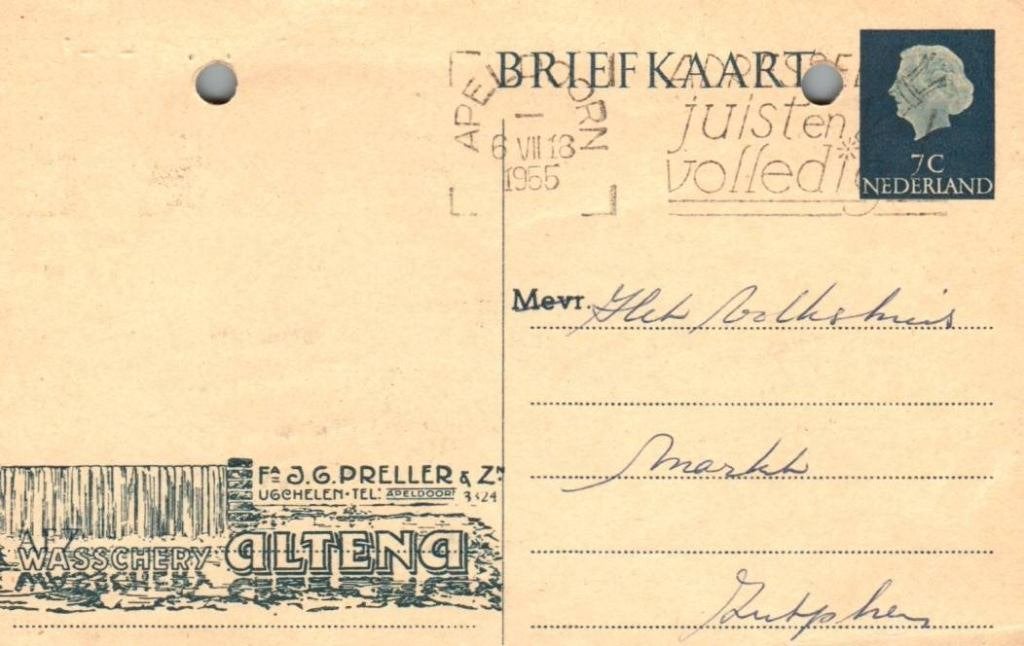 BRIEFKAART
APELDOORN
6 VII 18
1955
juist en
volledig
7C
NEDERLAND
Mevr. Het Volkshuis
Markt
Zutphen
FA J.G. PRELLER & ZN
UGCHELEN-TEL: APELDOORN 3424
WASSCHERY ALTENA